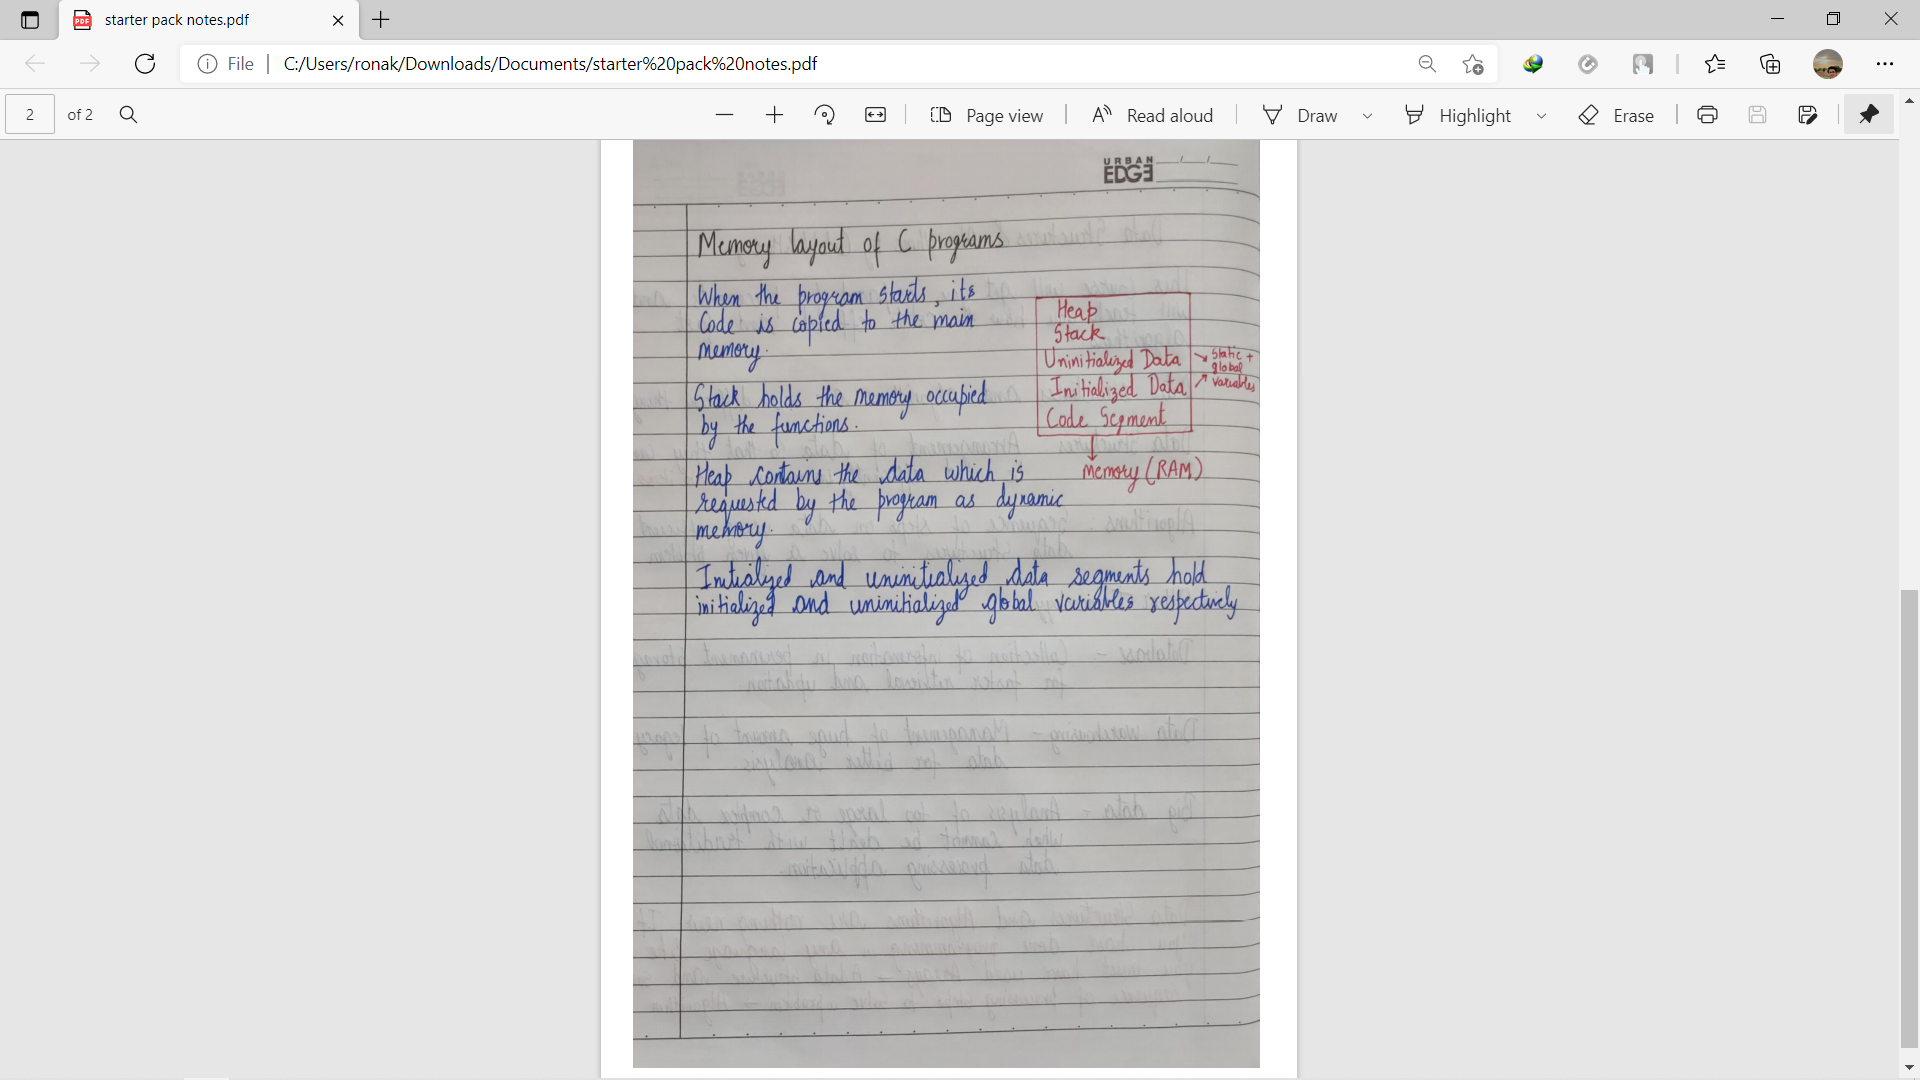 starter pack notes.pdf
File
C:/Users/ronak/Downloads/Documents/starter%20pack%20notes.pdf
2 of 2
Page view
Read aloud
Draw
Highlight
Erase
URBAN
EDGE
Memory layout of C programs
When the program starts, its
Code is copied to the main
memory.
Heap
Stack
Uninitialized Data
Initialized Data
Code Segment
Static +
global
variables
memory (RAM)
Stack holds the memory occupied
by the functions.
Heap contains the data which is
requested by the program as dynamic
memory.
Initialized and uninitialized data segments hold
initialized and uninitialized global variables respectively